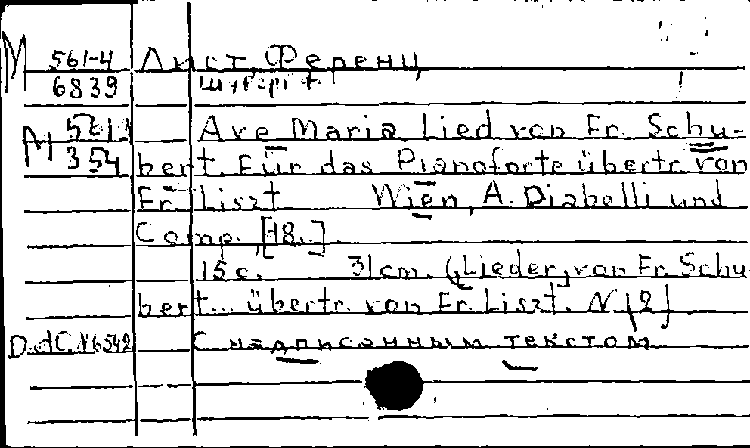 М 561-4 Лист, Ференц
6839 Шуберт Ф.
М 561
354 Ave Maria Lied von Fr. Schu-
bert. Für das Pianoforte übertr. von
Fr. Liszt Wien, A. Diabelli und
Comp. [18..]
15 с. 31 cm. („Lieder„ von Fr. Schu
bert... übertr. von Fr. Liszt. N 12)
D. et C. № 6542 С надписанным текстом